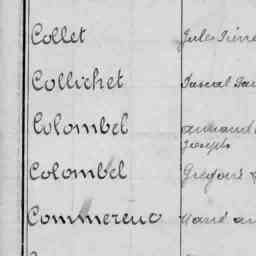 Collet Jules Pierre
Collichet Pascal
Colombel Armand
Joseph
Colombel Grégoire
Commereuc Marie